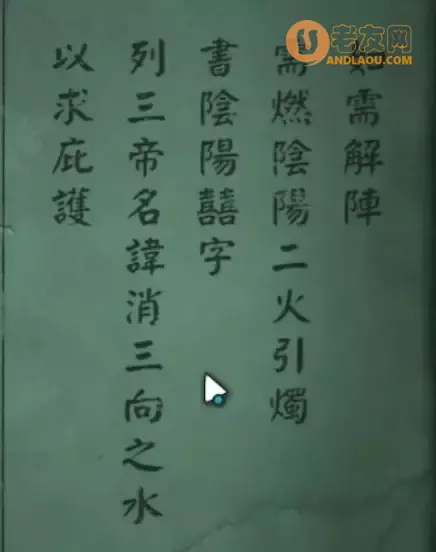 老友网
ANDLAOU.COM
如需解陣
需燃陰陽二火引燭
書陰陽囍字
列三帝名諱消三向之水
以求庇護